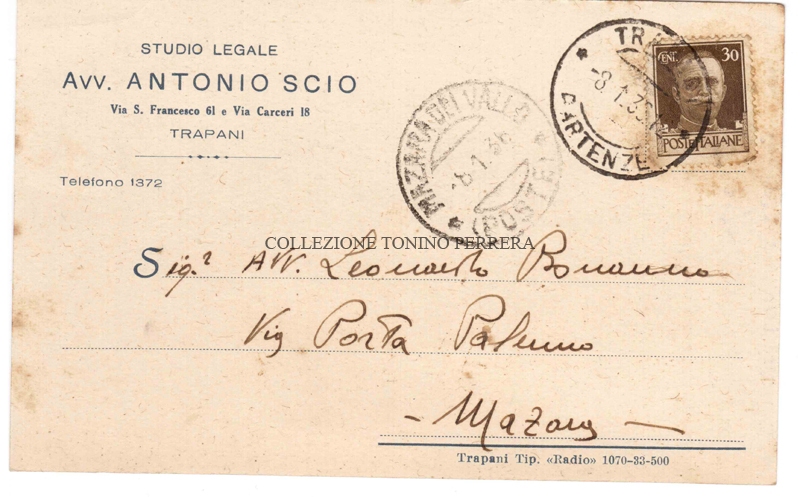 STUDIO LEGALE
AVV. ANTONIO SCIO
Via S. Francesco 61 e Via Carceri 18
TRAPANI
Telefono 1372
MAZARA DEL VALLO
-8.1.36
(POSTE)
TRA
-8.1.36
PARTENZE
CENT. 30
POSTE ITALIANE
COLLEZIONE TONINO PERRERA
Sig.r Avv. Leonardo Bonanno
Via Porta Palermo
- Mazara -
Trapani Tip. «Radio» 1070-33-500